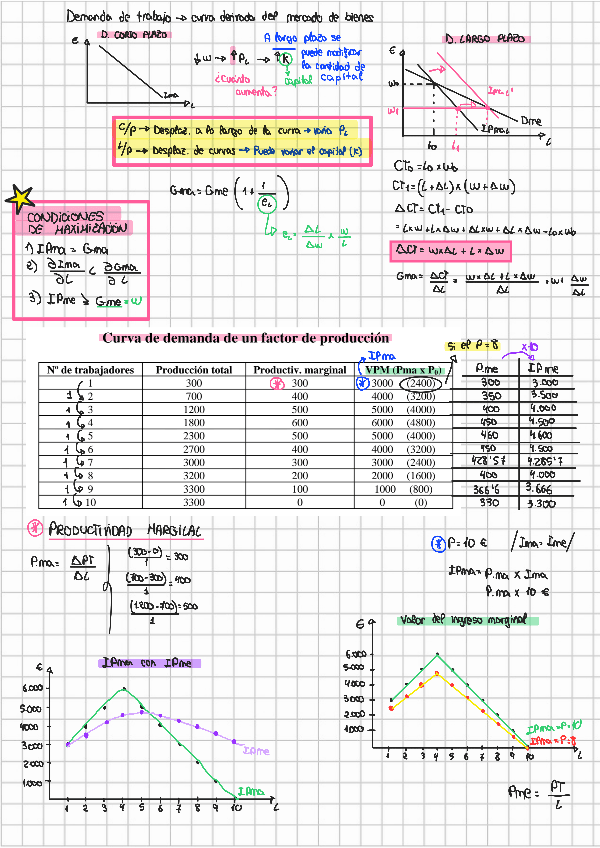 Demanda de trabajo → curva derivada del mercado de bienes
D. CORTO PLAZO
€
Ima
L
↓w → ↑PL → ↑K
¿Cuándo aumenta?
capital
A largo plazo se
puede modificar
la cantidad de
capital
D. LARGO PLAZO
€
W0
W1
L0
L1
IPmaL'
Dme
IPmaL
L
C/P → Desplaz. a lo largo de la curva → varía PL
L/P → Desplaz. de curvas → Puedo variar el capital (K)
CONDICIONES
DE MAXIMIZACIÓN
1) IPma = Gma
2) ∂Ima/∂L < ∂Gma/∂L
3) IPme ≥ Gme = w
Gma = Gme (1 + 1/eL)
eL = ΔL/Δw × w/L
CT0 = L0 × w0
CT1 = (L + ΔL) × (w + Δw)
ΔCT = CT1 - CT0
= L×w + L×Δw + ΔL×w + ΔL×Δw - L0×w0
ΔCT = w×ΔL + L×Δw
Gma = ΔCT/ΔL = w×ΔL + L×Δw/ΔL = w + Δw/ΔL
Curva de demanda de un factor de producción
si el P=8
x10
IPma
Nº de trabajadores Producción total Productiv. marginal VPM (Pma x P0) Pme IPme
1 300 * 300 * 3000 (2400) 300 3.000
1 2 700 400 4000 (3200) 350 3.500
1 3 1200 500 5000 (4000) 400 4.000
1 4 1800 600 6000 (4800) 450 4.500
1 5 2300 500 5000 (4000) 460 4.600
1 6 2700 400 4000 (3200) 450 4.500
1 7 3000 300 3000 (2400) 428'57 4.285'7
1 8 3200 200 2000 (1600) 400 4.000
1 9 3300 100 1000 (800) 366'6 3.666
1 10 3300 0 0 (0) 330 3.300
* PRODUCTIVIDAD MARGILAL
Pma = ΔPT/ΔL
(300-0)/1 = 300
(700-300)/1 = 400
(1200-700)/1 = 500
* P = 10 € / Ima = Ime /
IPma = Pma × Ima
Pma × 10 €
IPma con IPme
€
6.000
5.000
4000
3.000
2.000
1.000
1 2 3 4 5 6 7 8 9 10 L
IPme
IPma
Valor del ingreso marginal
€
6.000
5.000
4.000
3.000
2.000
1000
1 2 3 4 5 6 7 8 9 10 L
IPma=P=10
IPma=P=8
Pme = PT/L